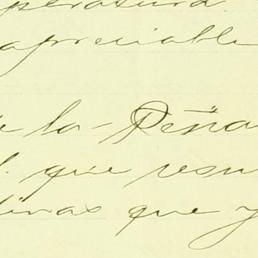 peratura.
apreciable
de la Peña
l. que resu
tivas que y